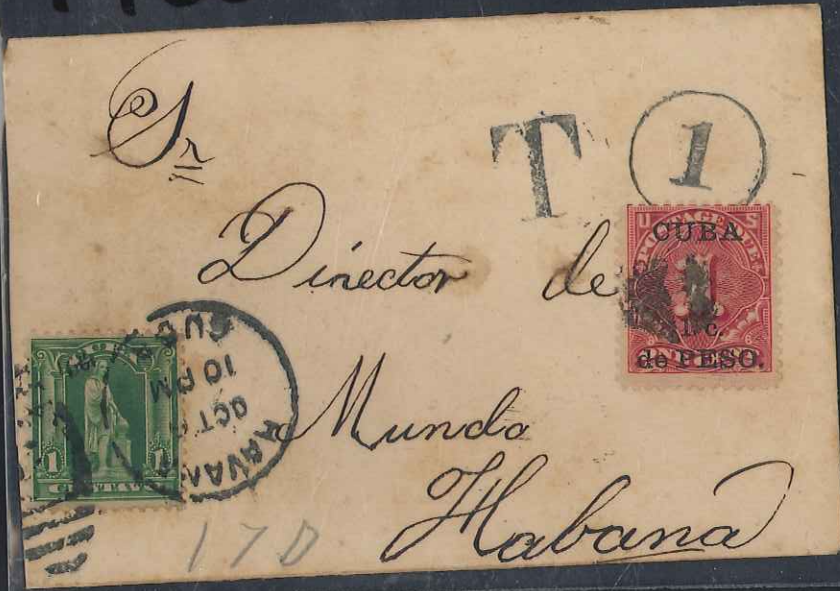 Sr
T 1
Director de
U S
POSTAGE DUE
CUBA
1 c.
de PESO.
CUBA
1 1
CENTAVO
HAVANA
OCT
10 PM
CUBA
Mundo
Habana
17D